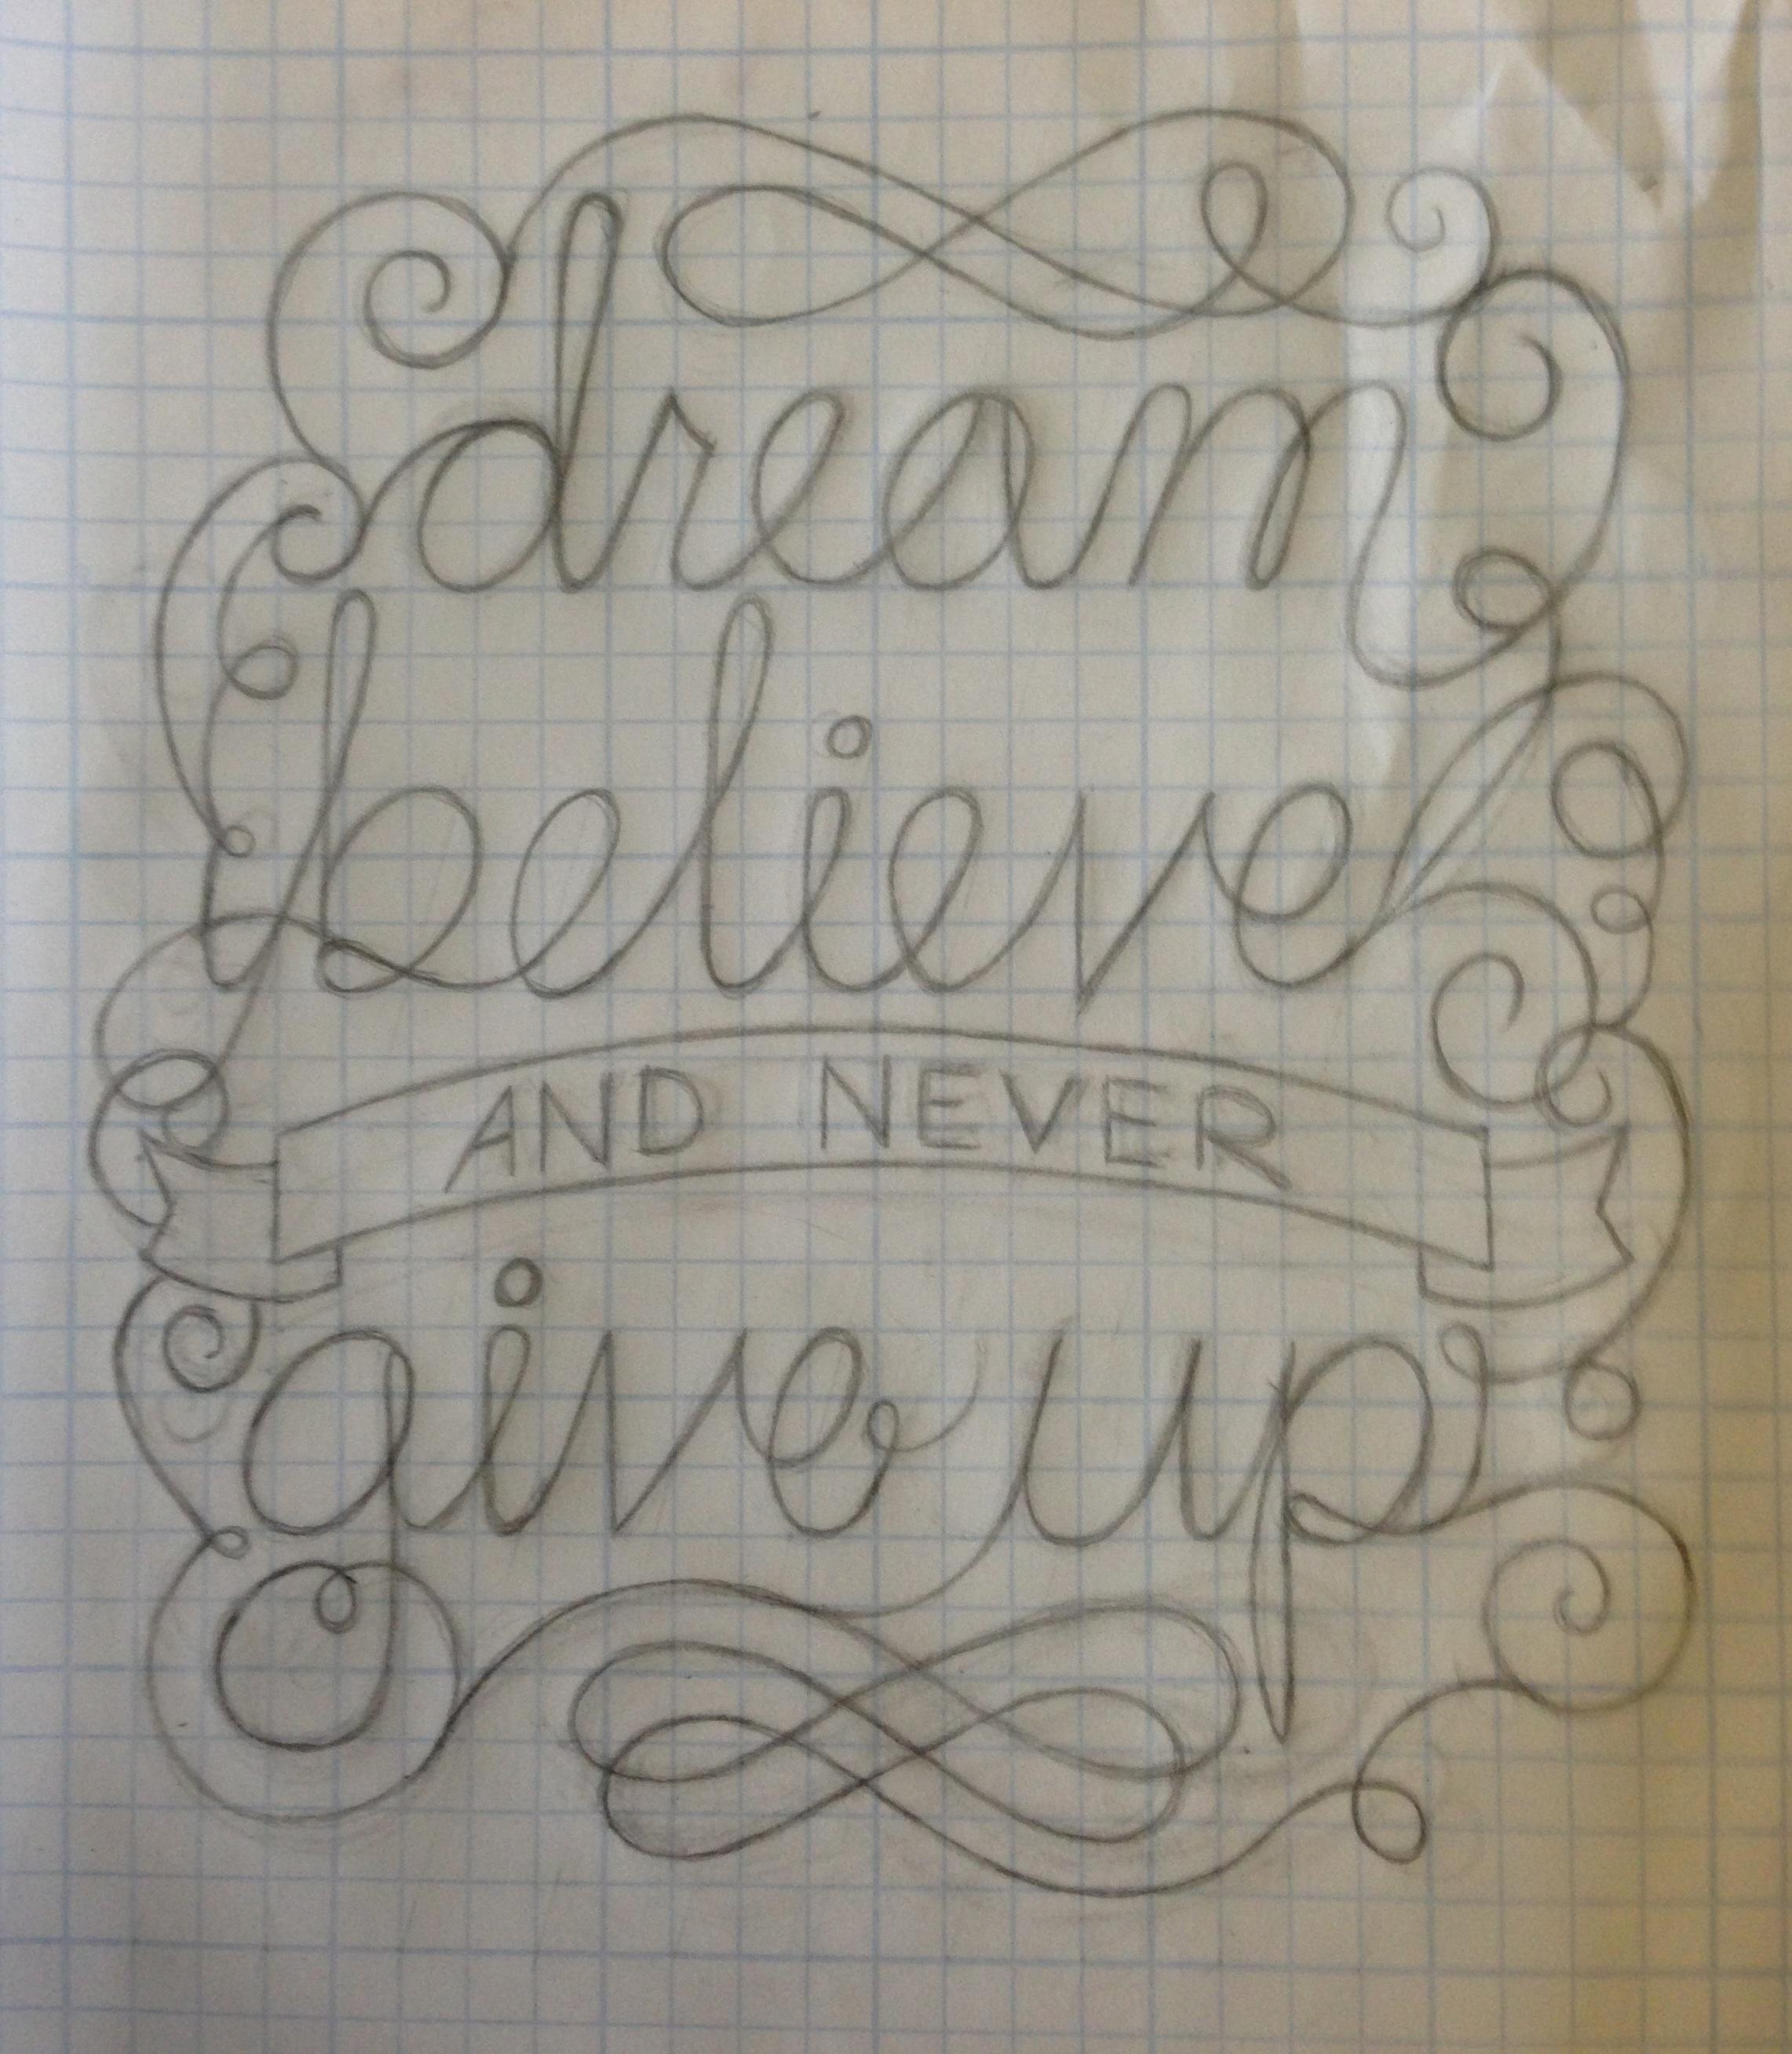 dream
believe
AND NEVER
give up